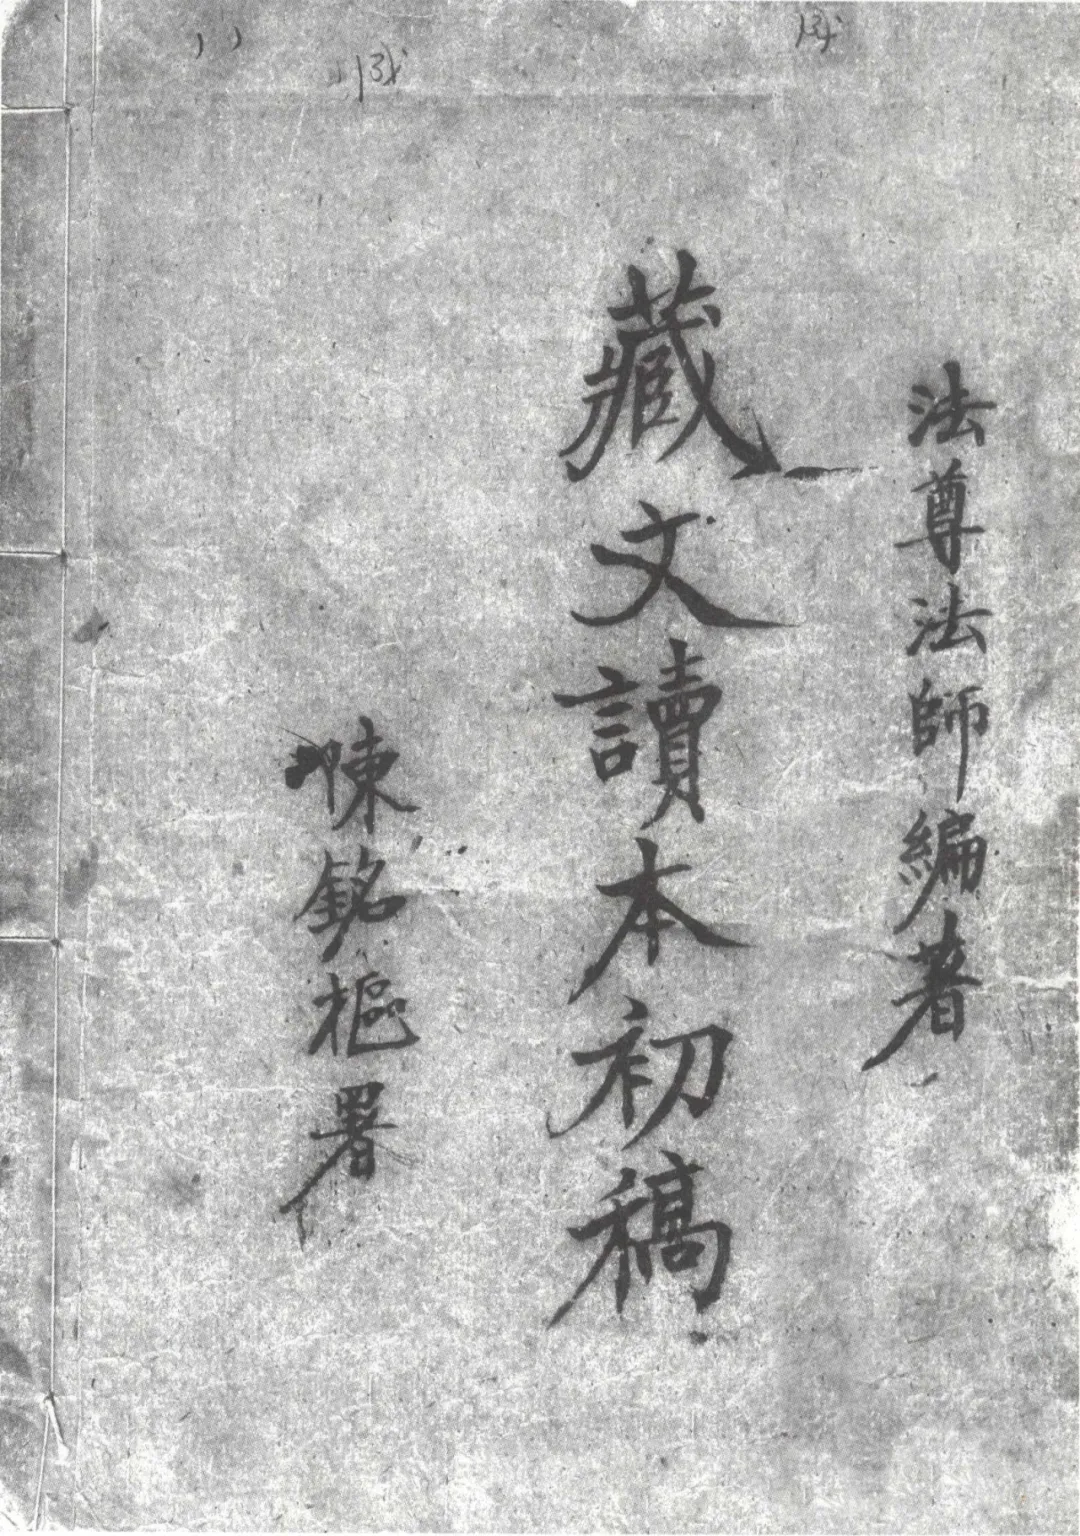 法尊法師編著
藏文讀本初稿
陳銘樞署